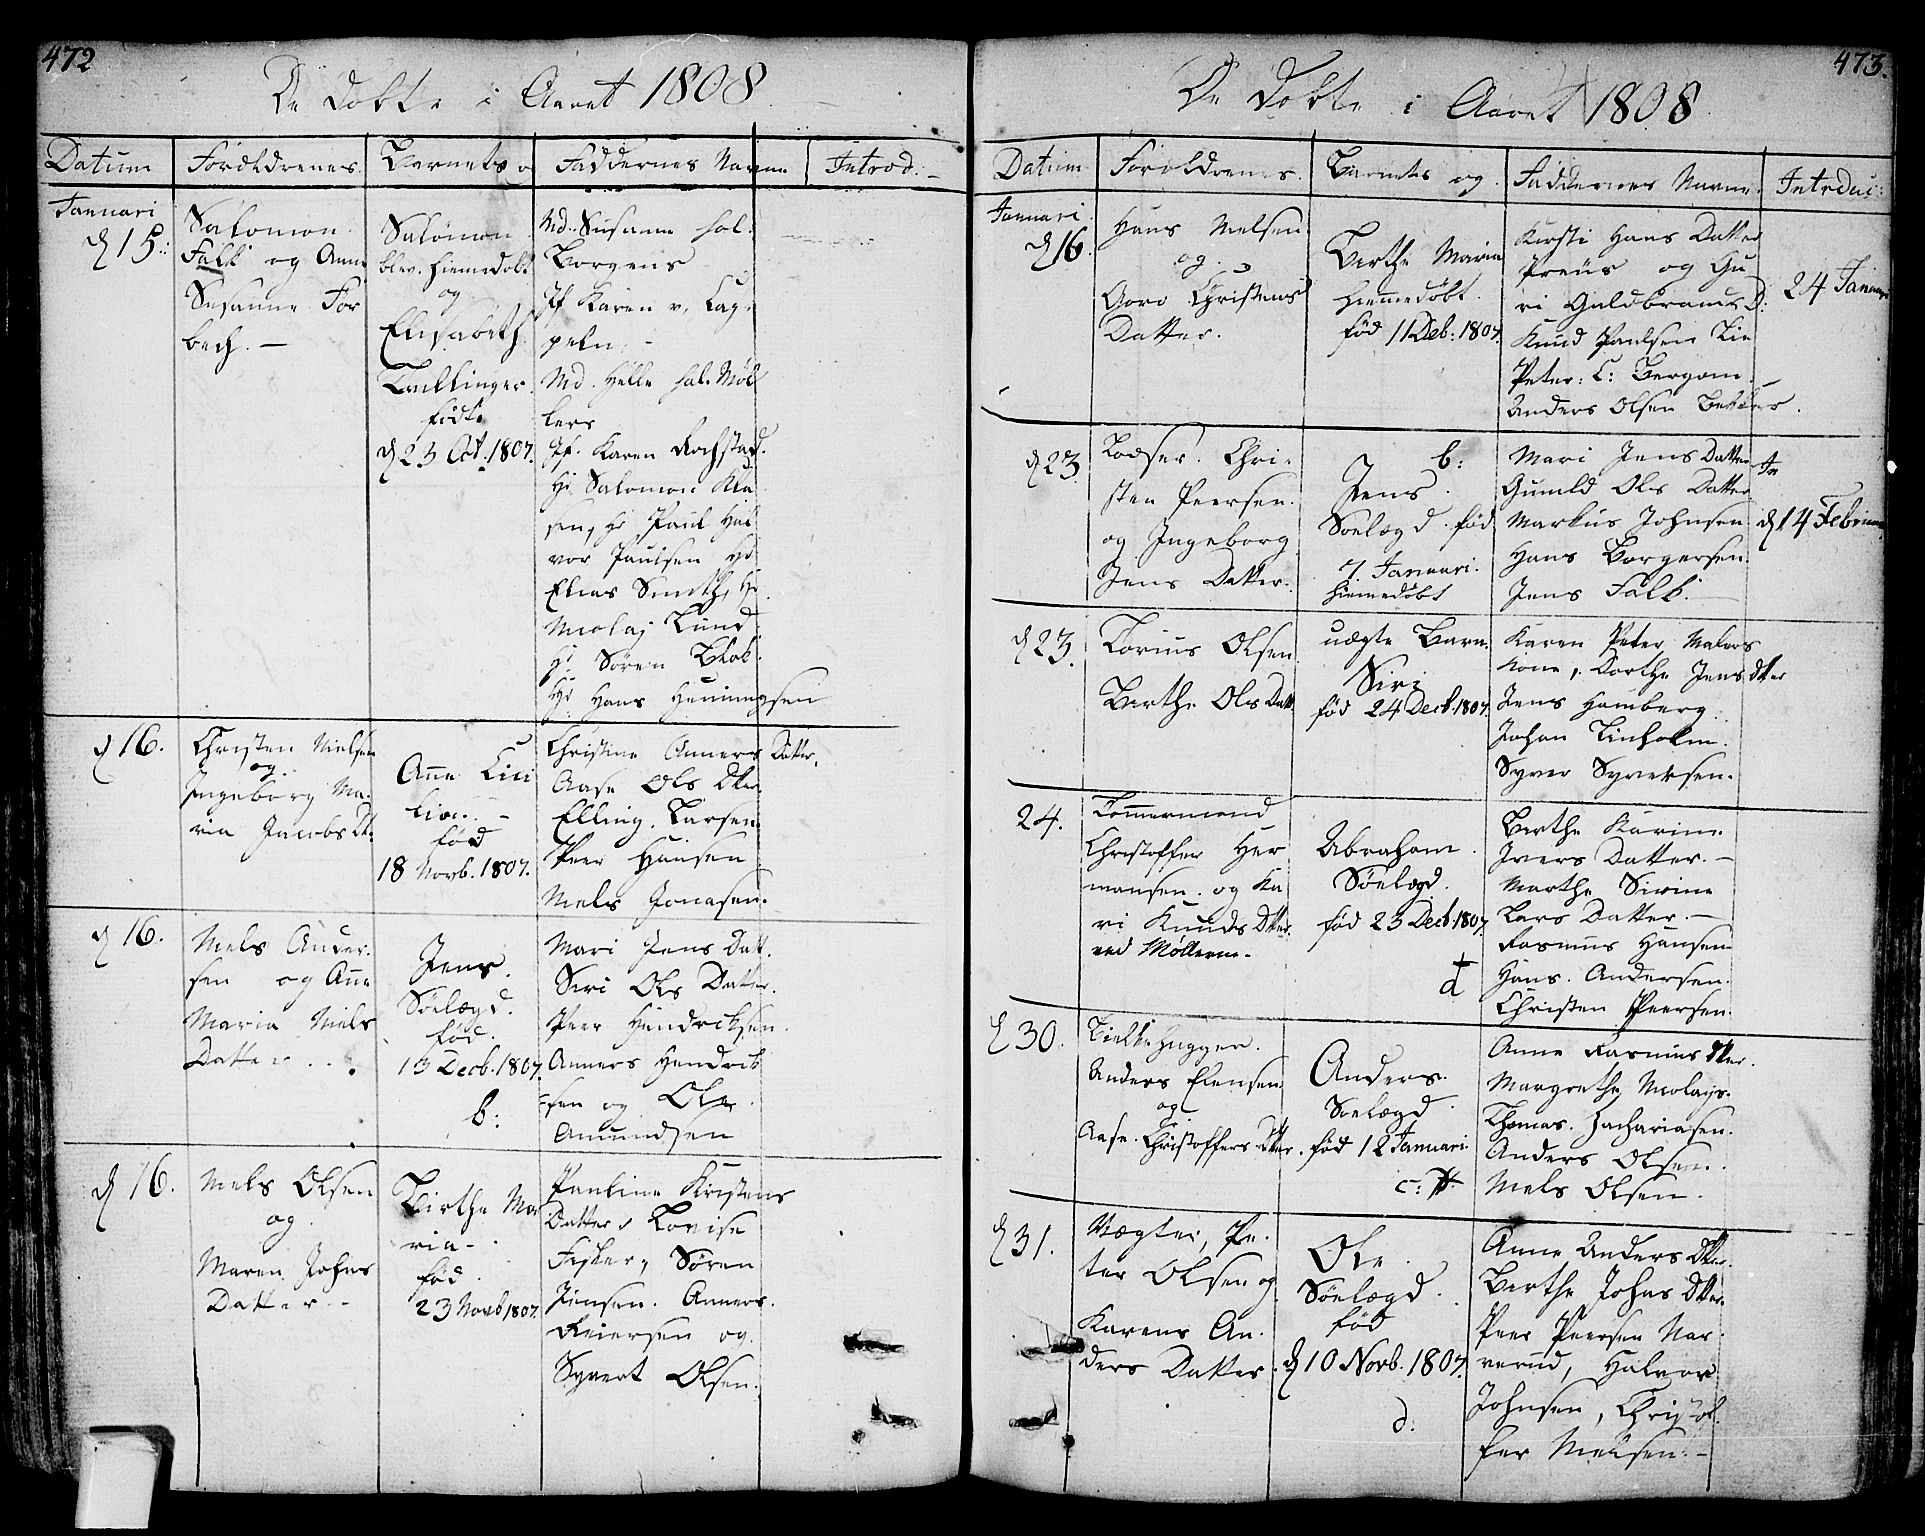 472
De Døbte i Aaret 1808.
Datum
Forældrenes
Barnets og
Faddernes Navne
Introd.
Januari
d 15.
Salomon
Falk og Anne
Susanne For
bech. —
Salomon
blev hiemedøbt
og
Elisabeth
født
d 23 Oct. 1807.
Md. Susanne Hal.
Borgens
Jf Karen v. Cap.
peln. —
Md. Helle Hal. Møl
lers
Jf. Karen Rochstad.
Hr Salomon Kla
sen, Hr Paul Hal
vor Paulsen Hr
Elias Smith, Hr
Nicolaj Lund
Hr Søren Blok.
Hr Hans Henningsen
d 16.
Christen Nielsen
og
Ingeborg Ma.
ria Jacobs Dt.
Anne Lici
lion. —
fød
18 Novb. 1807.
Christine Anners Datter,
Aase Ols Dtter
Elling Larsen
Peer Hansen
Niels Jonasen.
d 16.
Niels Ander.
sen og Anne
Maria Niels
Datter
Jens.
Søelægd.
fød.
13 Decb. 1807.
b:
Mari Jens Datt.
Siri Ols Datter.
Peer Hendricksen.
Anners Hendrick
sen og Ole
Amundsen
d 16.
Niels Olsen
og
Maren Johns
Datter. —
Birthe Ma
ria. —
fød
23 Novb 1807.
Pauline Kristens
Datter, Lovise
Fisker, Søren
Jensen. Anners.
Reiersen og
Syvert Olsen.
473.
De Døbte i Aaret 1808
Datum
Forældrenes.
Barnets og
Faddernes Navne
Introduc:
Januari.
d 16.
Hans Nielsen
og
Goro Christens
Datter.
Berthe Maria
hiemmedøbt.
fød 11 Deb: 1807.
Kirsti Hans Datter
Preüs og Gu
ri Guldbrands D:
Knud Paulsen Lie
Peter: C: Bergom
Anders Olsen
24 Januar
d 23.
Lodser. Chri.
sten Peersen.
og Ingeborg
Jens Datter.
b:
Jens.
Soelægd. fød
7 Januari.
hiemedøbt
Mari Jens Datter
Gunild Ols Datter
Markus Johnsen
Hans Borgersen.
Jens Falk.
In
d 14 Februar
d 23.
Torius Olsen.
Berthe Ols Datt.
uægte Barn.
Siri
fød 24 Decb. 1807.
Karen Peter Malers
Kone, Dorthe Jens Dtter
Jens Hamberg.
Johan Linholm.
Syver Syvertsen.
24.
Tømmermand
Christoffer Her
mansen. og Ka
ri Knuds Dtter
ved Møllerne.
Abraham.
Søelægd.
fød 23 Decb 1807
† d
Berthe Karine
Ivers Datter. —
Marthe Sirine
Lars Datter. —
Rasmus Hansen
Hans. Andersen.
Christen Peersen.
d 30.
Bielkehugger.
Anders Elensen
og
Aase. Christoffers Dtter.
Anders.
Soelægd.
fød 12 Januari.
c:
Anne Rasmus Dtter.
Margrethe Nicolays.
Thomas. Zachariasen.
Anders Olsen.
Niels Olsen.
d 31.
Vægter, Pe.
ter Olsen og
Karens An.
ders Datter.
Ole.
Søelægd.
fød
d 10 Novb. 1807.
d:
Anne Anders Dtter.
Berthe Johns Dtter.
Peer Peersen Nar.
verud, Halvor
Johnsen, Christof.
fer Nielsen. —